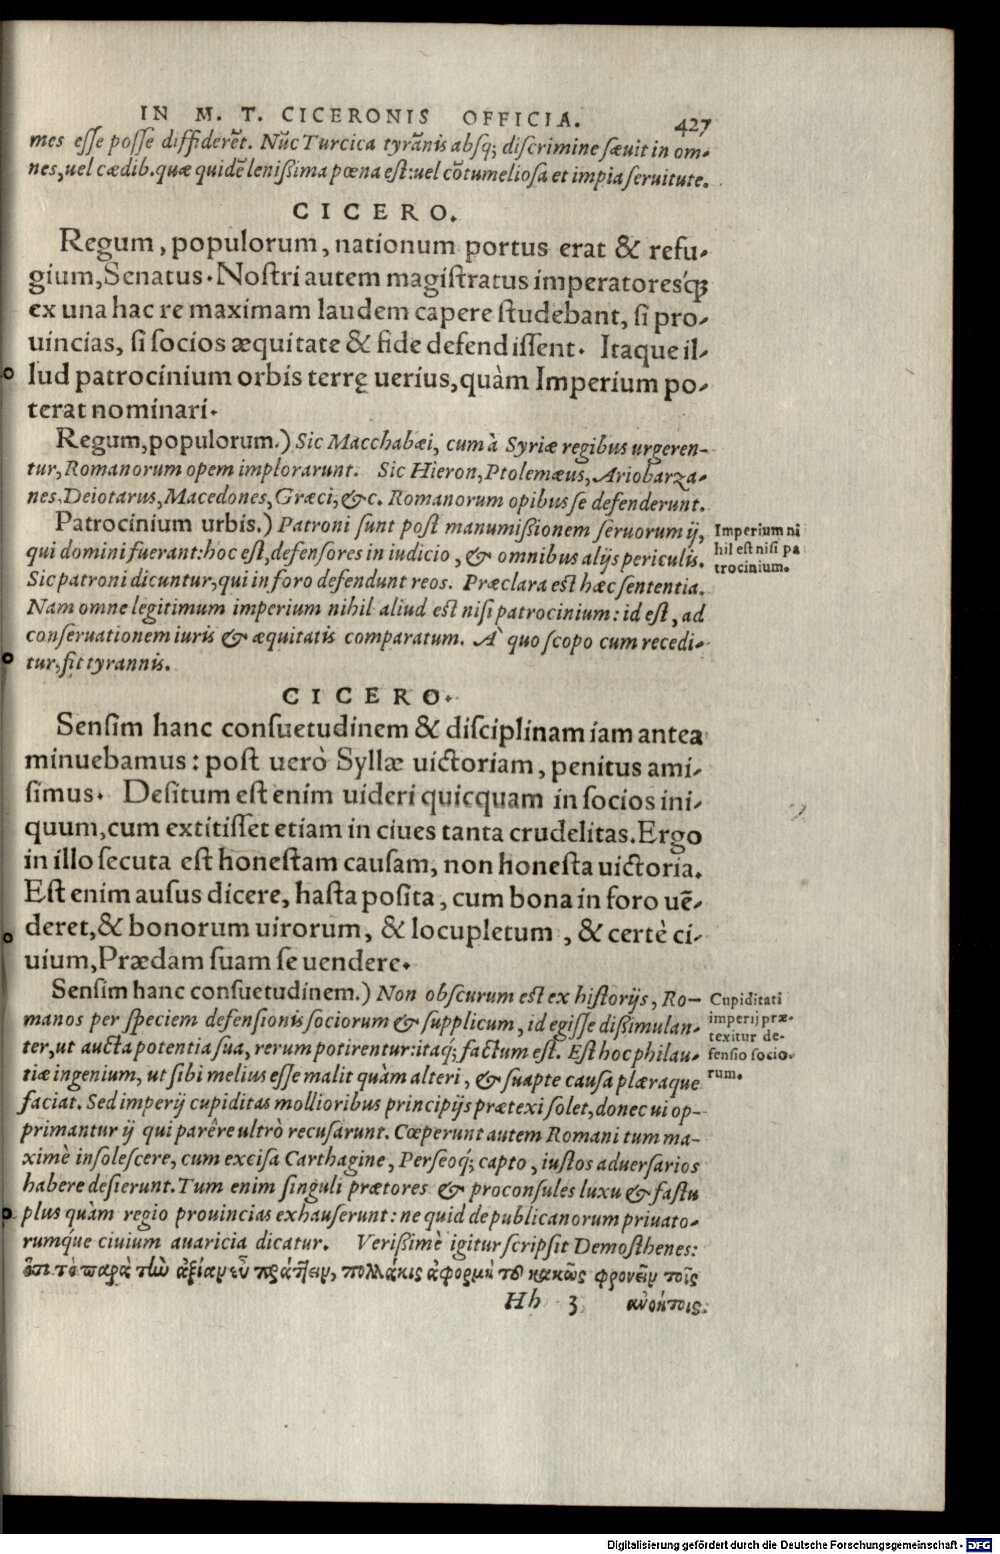 IN M. T. CICERONIS OFFICIA. 427
mes eſſe poſſe diffiderēt. Nūc Turcica tyrānis abſq; diſcrimine ſævit in om-
nes, uel cædib. quæ quidē leniſſima pœna eſt: uel cōtumelioſa et impia ſeruitute.
CICERO.
Regum, populorum, nationum portus erat & refu-
gium, Senatus. Noſtri autem magiſtratus imperatoresq́;
ex una hac re maximam laudem capere ſtudebant, ſi pro-
uincias, ſi ſocios æquitate & fide defendiſſent. Itaque il-
lud patrocinium orbis terrę uerius, quàm Imperium po-
terat nominari.
Regum, populorum.) Sic Macchabæi, cum à Syriæ regibus urgeren-
tur, Romanorum opem implorarunt. Sic Hieron, Ptolemæus, Ariobarza-
nes, Deiotarus, Macedones, Græci, &c. Romanorum opibus ſe defenderunt.
Patrocinium urbis.) Patroni ſunt poſt manumiſſionem ſeruorum ij,
qui domini fuerant: hoc eſt, defenſores in iudicio, & omnibus alijs periculis.
Sic patroni dicuntur, qui in foro defendunt reos. Præclara eſt hæc ſententia.
Nam omne legitimum imperium nihil aliud eſt niſi patrocinium: id eſt, ad
conſeruationem iuris & æquitatis comparatum. A` quo ſcopo cum recedi-
tur, fit tyrannis.
Imperium ni
hil eſt niſi pa
trocinium.
CICERO.
Senſim hanc conſuetudinem & diſciplinam iam antea
minuebamus: poſt uerò Syllæ uictoriam, penitus ami-
ſimus. Deſitum eſt enim uideri quicquam in ſocios ini-
quum, cum extitiſſet etiam in ciues tanta crudelitas. Ergo
in illo ſecuta eſt honeſtam cauſam, non honeſta uictoria.
Eſt enim auſus dicere, haſta poſita, cum bona in foro uē-
deret, & bonorum uirorum, & locupletum, & certè ci-
uium, Prædam ſuam ſe uendere.
Senſim hanc conſuetudinem.) Non obſcurum eſt ex hiſtorijs, Ro-
manos per ſpeciem defenſionis ſociorum & ſupplicum, id egiſſe diſſimulan-
ter, ut aucta potentia ſua, rerum potirentur: itaq́; factum eſt. Eſt hoc philau-
tiæ ingenium, ut ſibi melius eſſe malit quàm alteri, & ſuapte cauſa plæraque
faciat. Sed imperij cupiditas mollioribus principijs prætexi ſolet, donec ui op-
primantur ij qui parêre ultrò recuſarunt. Cœperunt autem Romani tum ma-
ximè inſoleſcere, cum exciſa Carthagine, Perſeoq́; capto, iuſtos aduerſarios
habere deſierunt. Tum enim ſinguli prætores & proconſules luxu & faſtu
plus quàm regio prouincias exhauſerunt: ne quid de publicanorum priuato-
rumq́ue ciuium auaricia dicatur. Veriſſimè igitur ſcripſit Demoſthenes:
ὅτι τὸ παρὰ τὴν ἀξίαν εὖ πράττειν, πολλάκις ἀφορμὴ τοῦ κακῶς φρονεῖν τοῖς
Cupiditati
imperij præ-
texitur de-
fenſio ſocio-
rum.
Hh 3 ανοήτοις.
Digitalisierung gefördert durch die Deutsche Forschungsgemeinschaft - DFG